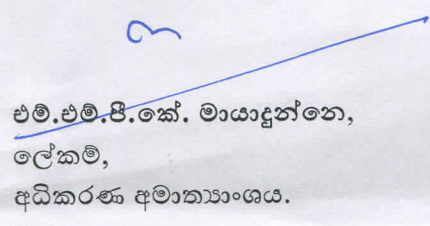 එම්.එම්.පී.කේ. මායාදුන්නෙ,
ලේකම්,
අධිකරණ අමාත්‍යාංශය.